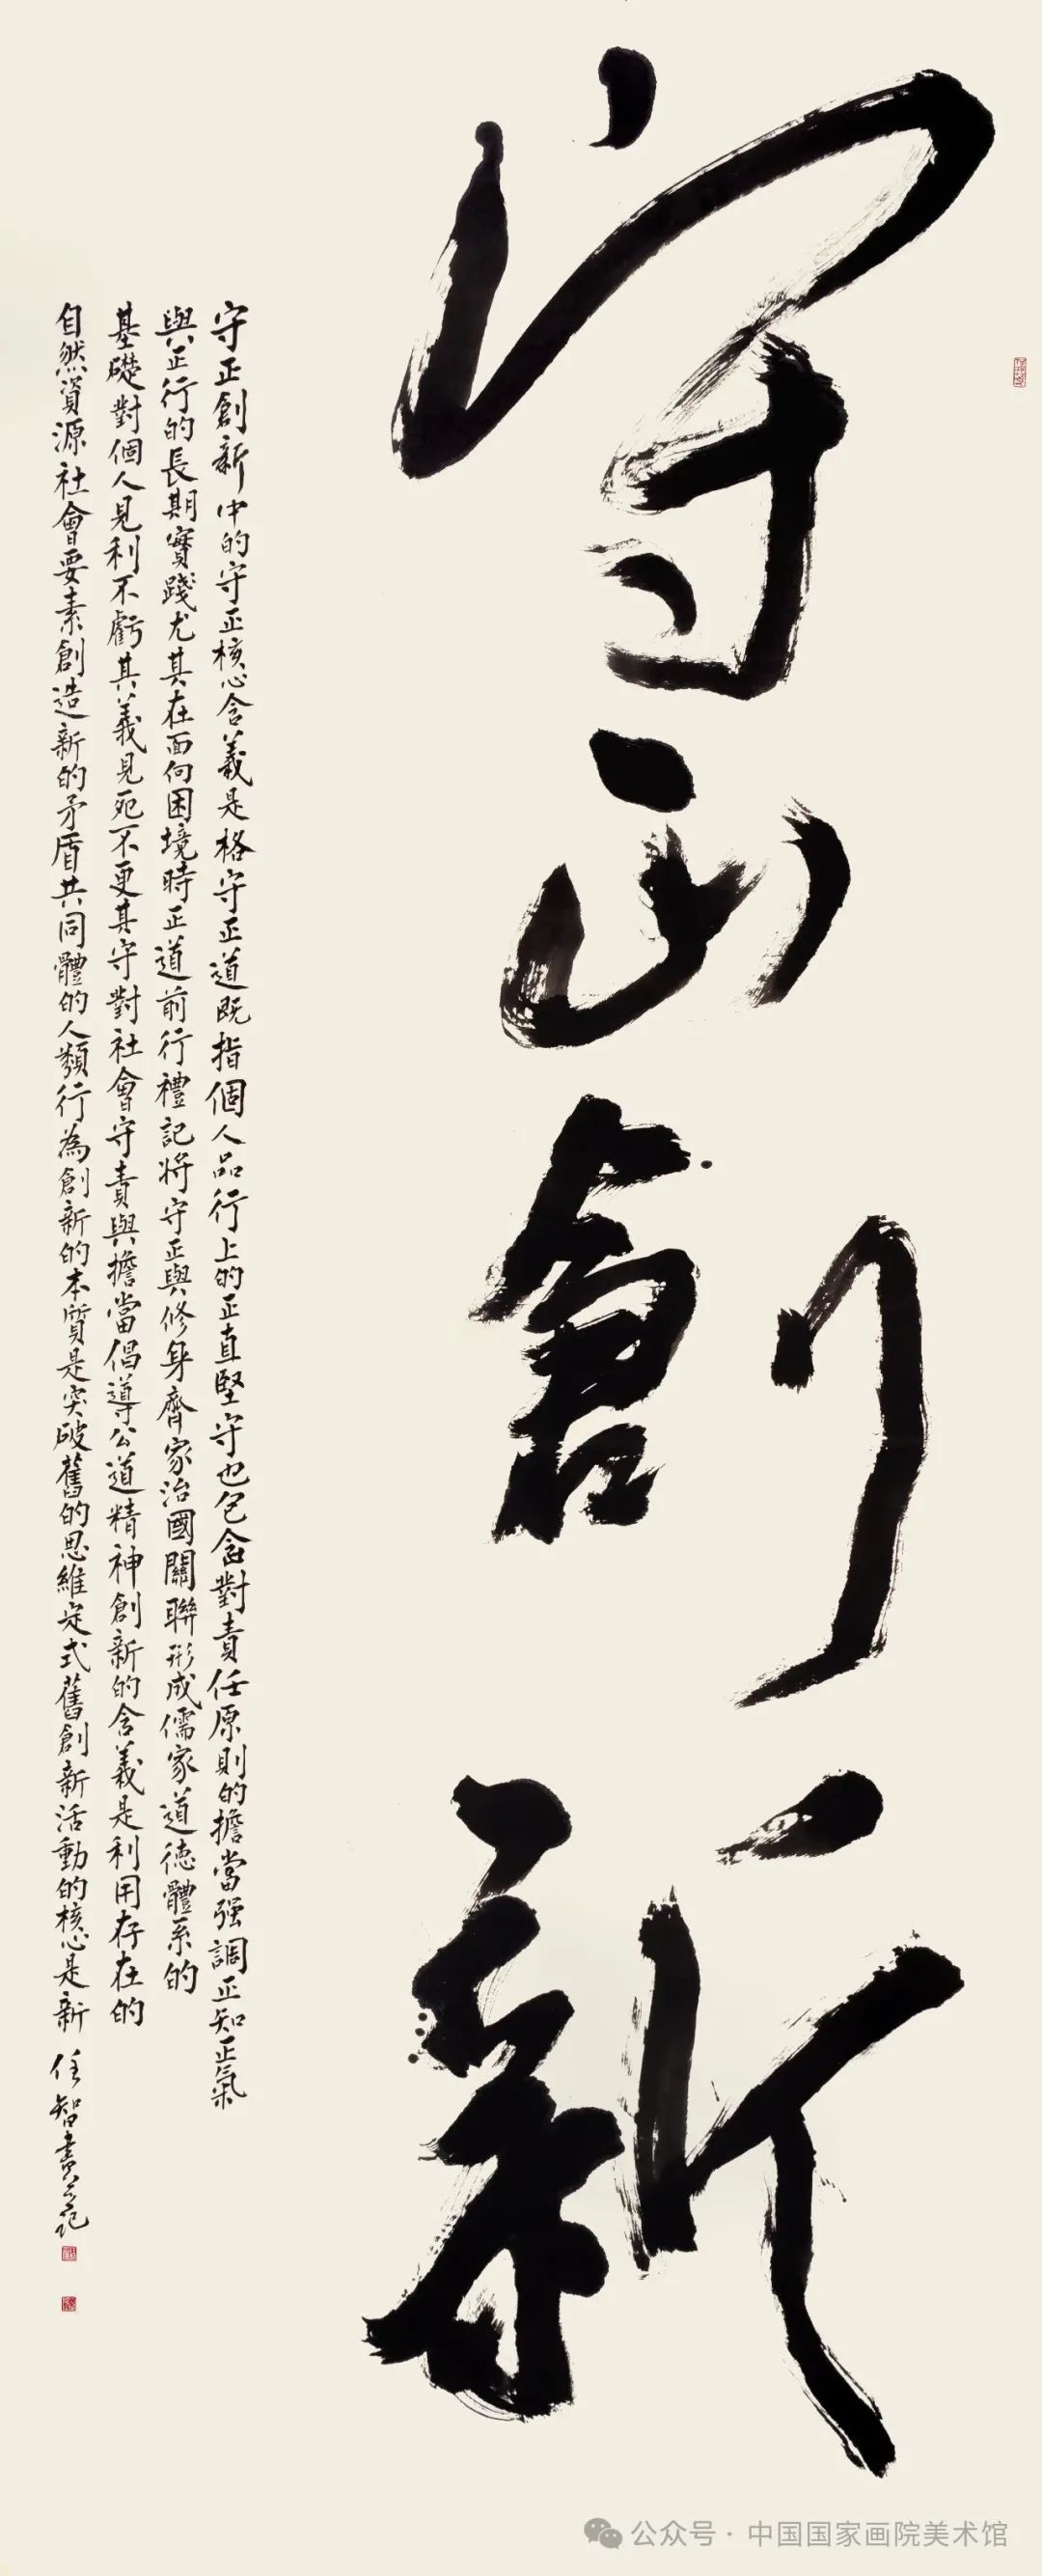 守正創新
守正創新中的守正核心含義是格守正道既指個人品行上的正直堅守也包含對責任原則的擔當强調正知正氣
與正行的長期實踐尤其在面向困境時正道前行禮記將守正與修身齊家治國關聯形成儒家道德體系的
基礎對個人見利不虧其義見死不更其守對社會守責與擔當倡導公道精神創新的含義是利用存在的
自然資源社會要素創造新的矛盾共同體的人類行為創新的本質是突破舊的思維定式舊創新活動的核心是新 任智書並記
公众号·中国国家画院美术馆